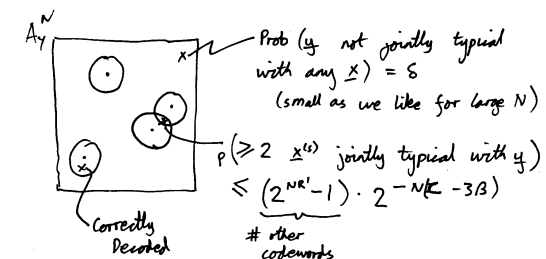 A_y^N
Prob (y not jointly typical
with any x) = δ
(small as we like for large N)
P(≥ 2 x^(s) jointly typical with y)
≤ (2^{NR'} - 1) · 2^{-N(C - 3β)}
# other
codewords
Correctly
Decoded